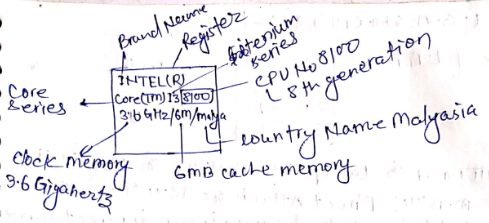 Brand Name
Register
series
CPU No 8100
8th generation
Core
series
INTEL(R)
Core(TM) I3 8100
3.6 GHz/6m/malya
country Name Malyasia
6mB cache memory
Clock memory
3.6 Gigahertz